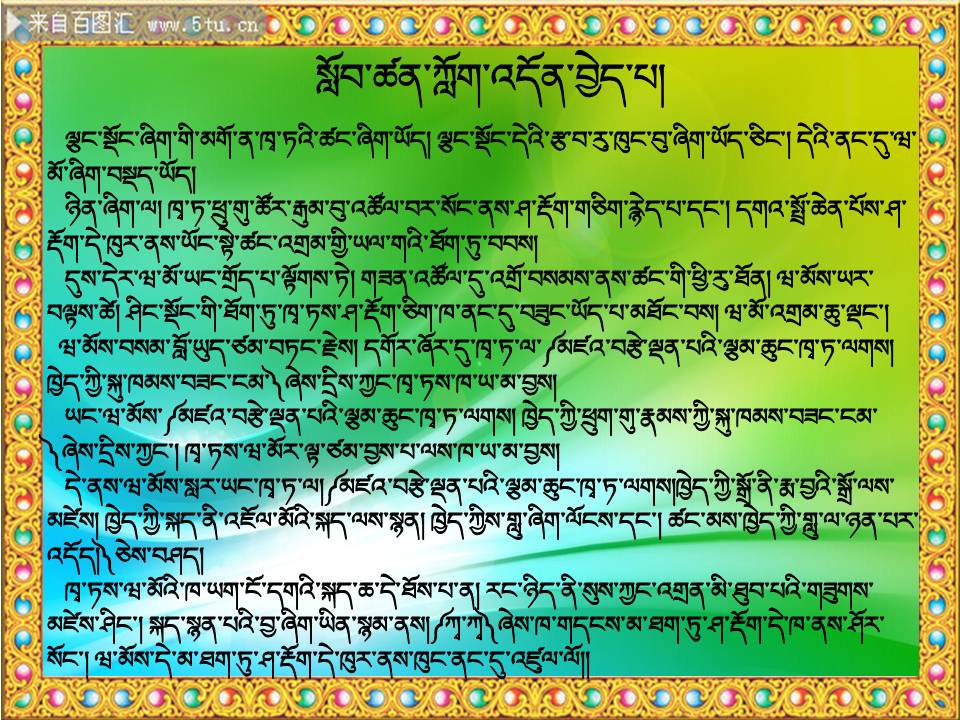 来自百图汇 www.5tu.cn
སློབ་ཚན་ཀློག་འདོན་བྱེད་པ།
ལྕང་སྡོང་ཞིག་གི་མགོ་ན་ཁྭ་ཏའི་ཚང་ཞིག་ཡོད། ལྕང་སྡོང་དེའི་རྩ་བ་རུ་ཁུང་བུ་ཞིག་ཡོད་ཅིང་། དེའི་ནང་དུ་ཝ་
མོ་ཞིག་བསྡད་ཡོད།
ཉིན་ཞིག་ལ། ཁྭ་ཏ་ཕྲུ་གུ་ཚོར་རྒྱུམ་བུ་འཚོལ་བར་སོང་ནས་ཤ་རྡོག་གཅིག་རྙེད་པ་དང་། དགའ་སྤྲོ་ཆེན་པོས་ཤ་
རྡོག་དེ་ཁུར་ནས་ཡོང་སྟེ་ཚང་འགྲམ་གྱི་ཡལ་གའི་ཐོག་ཏུ་བབས།
དུས་དེར་ཝ་མོ་ཡང་གྲོད་པ་ལྟོགས་ཏེ། གཟན་འཚོལ་དུ་འགྲོ་བསམས་ནས་ཚང་གི་ཕྱི་རུ་ཐོན། ཝ་མོས་ཡར་
བལྟས་ཚེ། ཤིང་སྡོང་གི་ཐོག་ཏུ་ཁྭ་ཏས་ཤ་རྡོག་ཅིག་ཁ་ནང་དུ་བཟུང་ཡོད་པ་མཐོང་བས། ཝ་མོ་འགྲམ་ཆུ་ལྡང་།
ཝ་མོས་བསམ་བློ་ཡུད་ཙམ་བཏང་རྗེས། དགོར་ཞོར་དུ་ཁྭ་ཏ་ལ་༼མཛའ་བརྩེ་ལྡན་པའི་ལྕམ་ཆུང་ཁྭ་ཏ་ལགས།
ཁྱེད་ཀྱི་སྐུ་ཁམས་བཟང་ངམ༽ཞེས་དྲིས་ཀྱང་ཁྭ་ཏས་ཁ་ཡ་མ་བྱས།
ཡང་ཝ་མོས་༼མཛའ་བརྩེ་ལྡན་པའི་ལྕམ་ཆུང་ཁྭ་ཏ་ལགས། ཁྱེད་ཀྱི་ཕྲུག་གུ་རྣམས་ཀྱི་སྐུ་ཁམས་བཟང་ངམ་
༽ཞེས་དྲིས་ཀྱང་། ཁྭ་ཏས་ཝ་མོར་ལྟ་ཙམ་བྱས་པ་ལས་ཁ་ཡ་མ་བྱས།
དེ་ནས་ཝ་མོས་སླར་ཡང་ཁྭ་ཏ་ལ།༼མཛའ་བརྩེ་ལྡན་པའི་ལྕམ་ཆུང་ཁྭ་ཏ་ལགས།ཁྱེད་ཀྱི་སྒྲོ་ནི་རྨ་བྱའི་སྒྲོ་ལས་
མཛེས། ཁྱེད་ཀྱི་སྐད་ནི་འཇོལ་མོའི་སྐད་ལས་སྙན། ཁྱེད་ཀྱིས་གླུ་ཞིག་ལོངས་དང་། ཚང་མས་ཁྱེད་ཀྱི་གླུ་ལ་ཉན་པར་
འདོད།༽ཅེས་བཤད།
ཁྭ་ཏས་ཝ་མོའི་ཁ་ཡག་ངོ་དགའི་སྐད་ཆ་དེ་ཐོས་པ་ན། རང་ཉིད་ནི་སུས་ཀྱང་འགྲན་མི་ཐུབ་པའི་གཟུགས་
མཛེས་ཤིང་། སྐད་སྙན་པའི་བྱ་ཞིག་ཡིན་སྙམ་ནས།༼ཀྭ་ཀྭ༽ཞེས་ཁ་གདངས་མ་ཐག་ཏུ་ཤ་རྡོག་དེ་ཁ་ནས་ཤོར་
སོང་། ཝ་མོས་དེ་མ་ཐག་ཏུ་ཤ་རྡོག་དེ་ཁུར་ནས་ཁུང་ནང་དུ་འཛུལ་ལོ།།